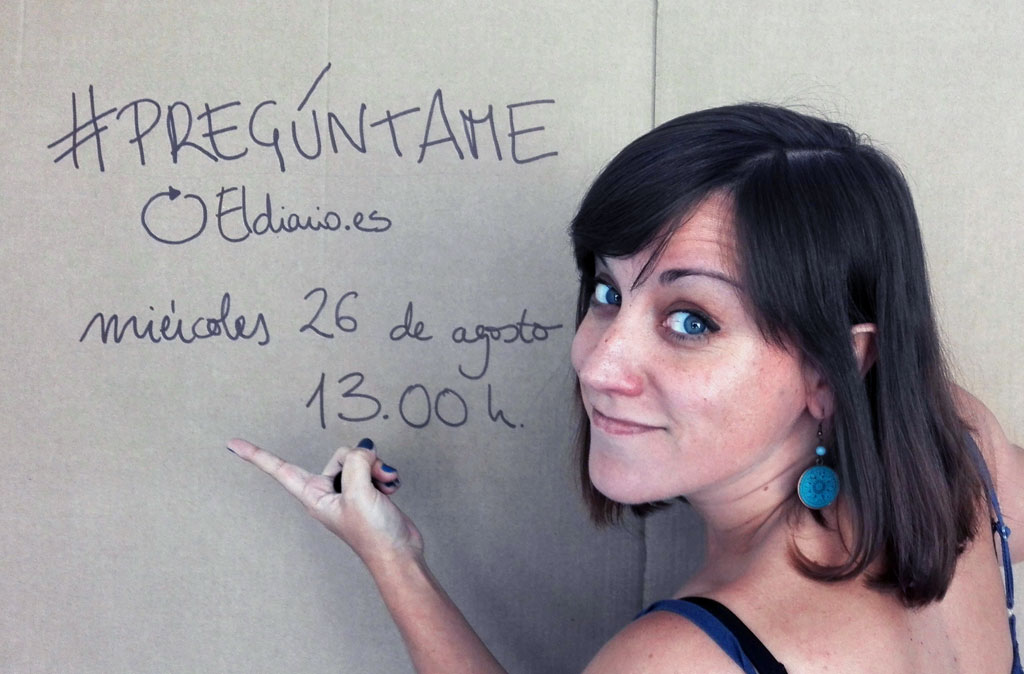 #PREGÚNTAME
Eldiario.es
miércoles 26 de agosto
13.00 h.